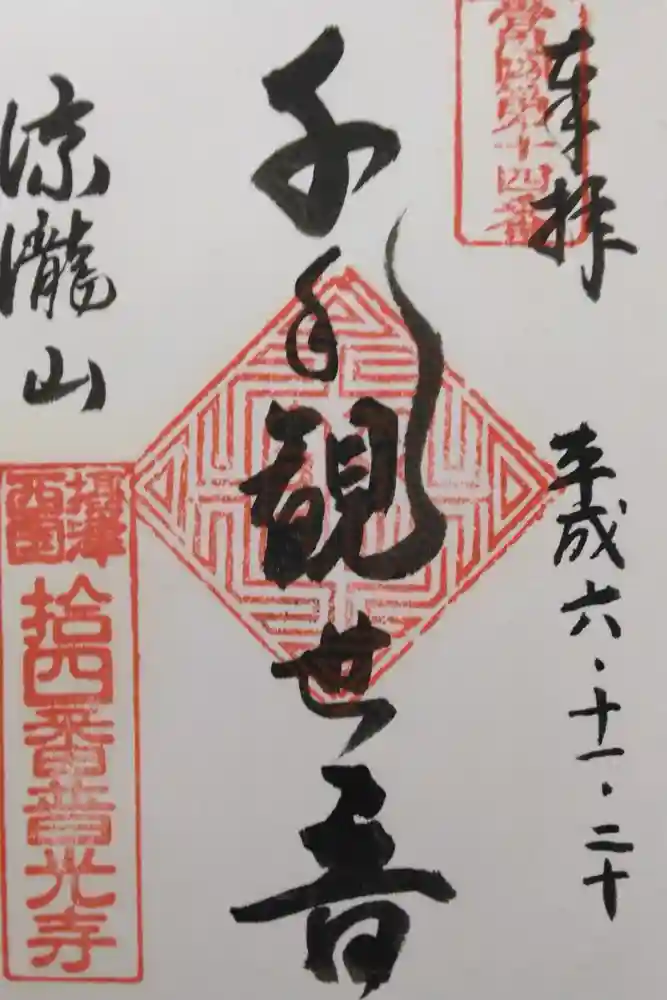 奉拝
第十四番
平成六・十一・二十
千手観世音
涼瀧山
攝津
西國
拾四番普光寺